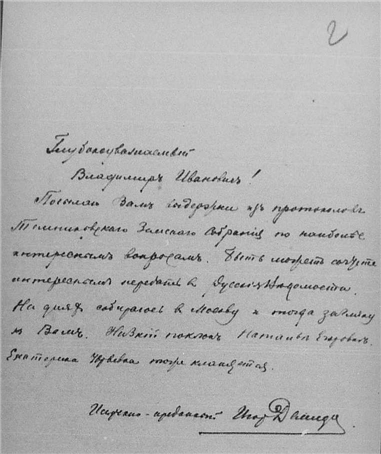 2
Глубокоуважаемый
Владимиръ Ивановичъ!
Посылаю Вамъ выдержки изъ протоколовъ
Темниковскаго Земскаго Собранія по наиболѣе
интереснымъ вопросамъ. Быть можетъ сочтете
интереснымъ передать въ Русскія Вѣдомости.
На дняхъ собираюсь въ Москву и тогда зайду
къ Вамъ. Низкій поклонъ Натальѣ Егоровнѣ.
Екатерина тоже кланяется.
Искренно-преданный Игорь Демидо